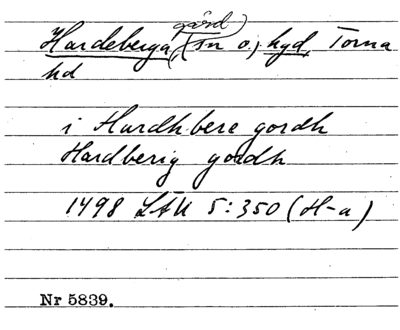 gård
Hardeberga, (sn o.) hgd, Torna
hd
i Hardh bere gordh
Hardberig gordh
1498 LÄU 5:350 (H-a)
Nr 5839.